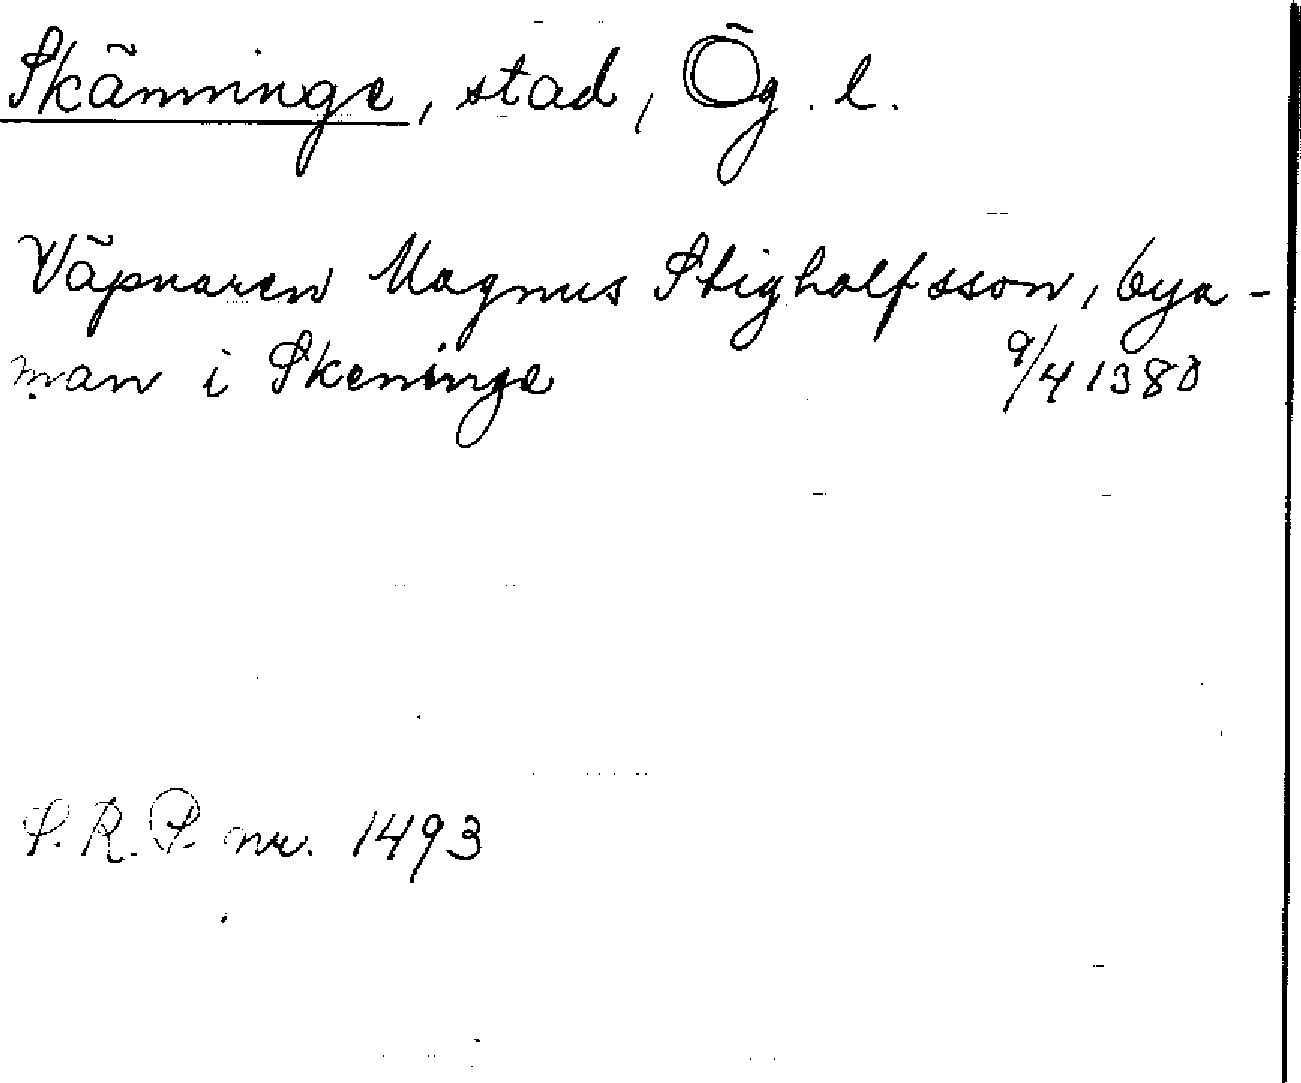 Skänninge, stad, Ög. l.
Väpnaren Magnus Stigholfsson, bya-
man i Skeninge 9/4 1380
S. R. P. nr. 1493